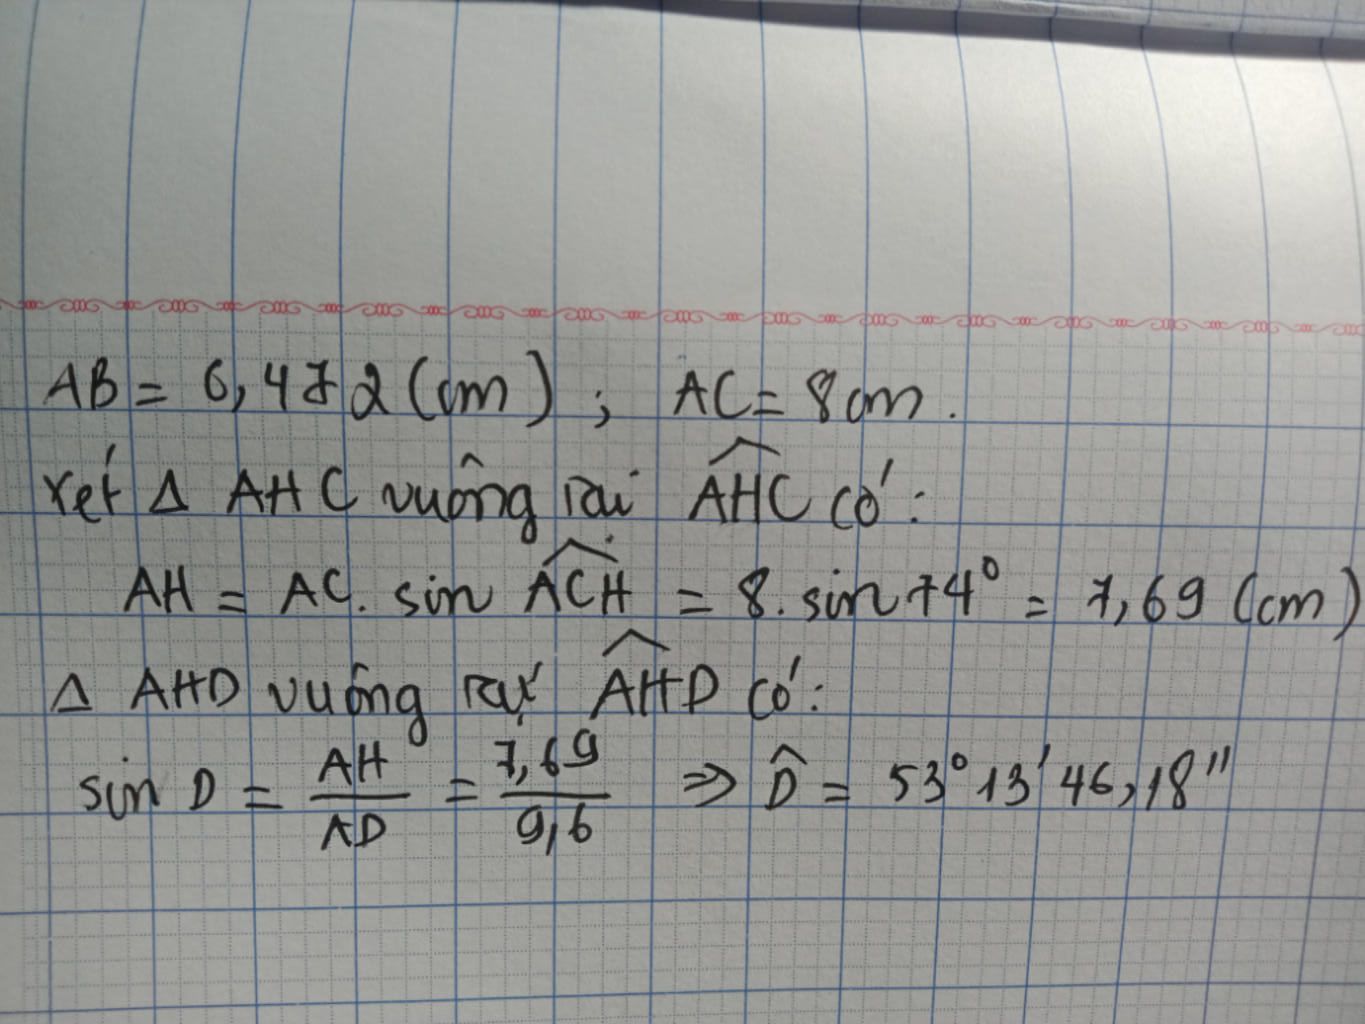 AB = 6,472 (cm) ; AC = 8 cm.
xét Δ AHC vuông tại \widehat{AHC} có:
AH = AC. sin \widehat{ACH} = 8. sin 74° = 7,69 (cm)
Δ AHD vuông tại \widehat{AHD} có:
sin D = \frac{AH}{AD} = \frac{7,69}{9,6} ⇒ \widehat{D} = 53° 13' 46,18"